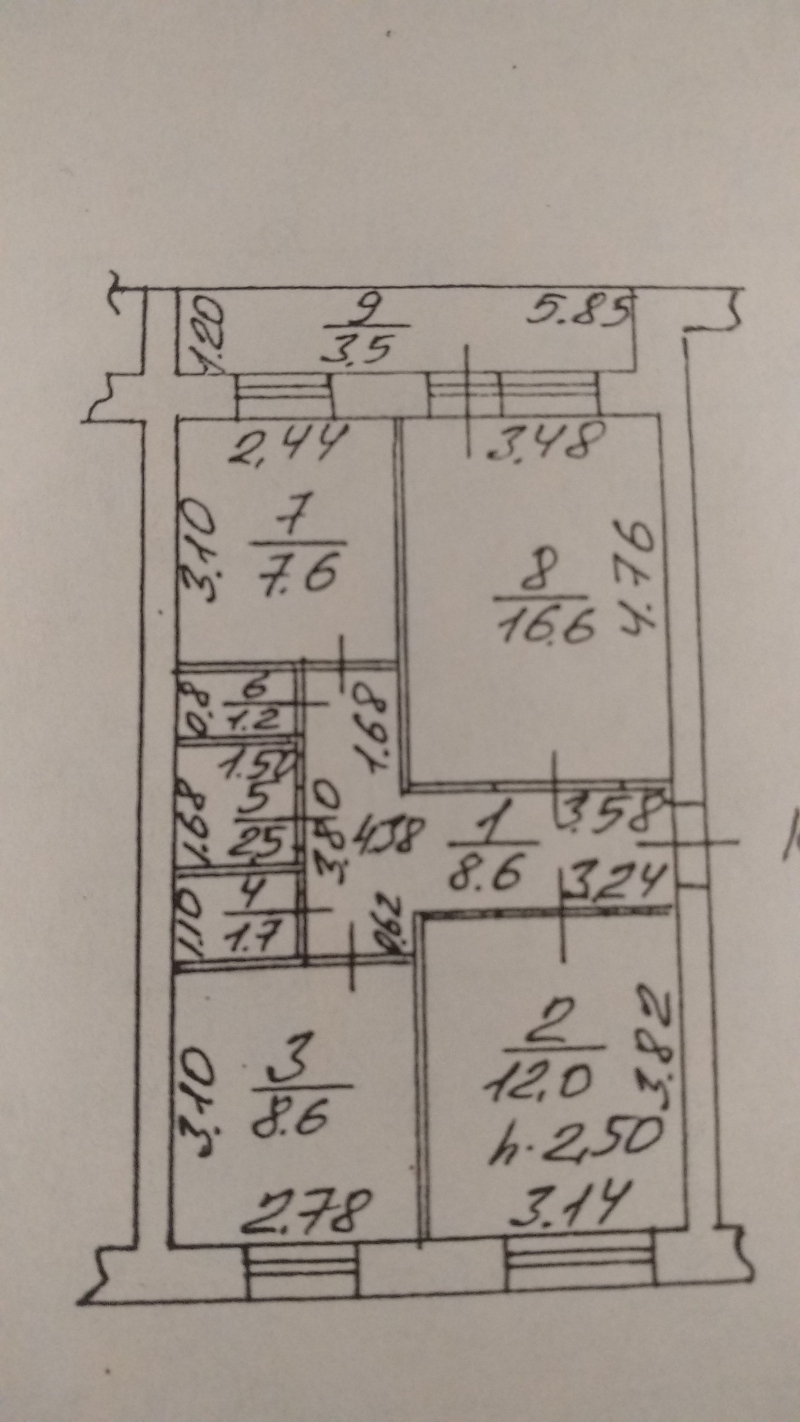 1.20
9
3.5
5.85
2,44
3.48
3.10
7
7.6
8
16.6
4.76
0.8
6
1.2
1.68
1.50
1.68
5
2.5
3.80
4.38
1
8.6
3.58
3.24
1.10
4
1.7
0.62
3.10
3
8.6
2.78
2
12.0
h.2,50
3.82
3.14